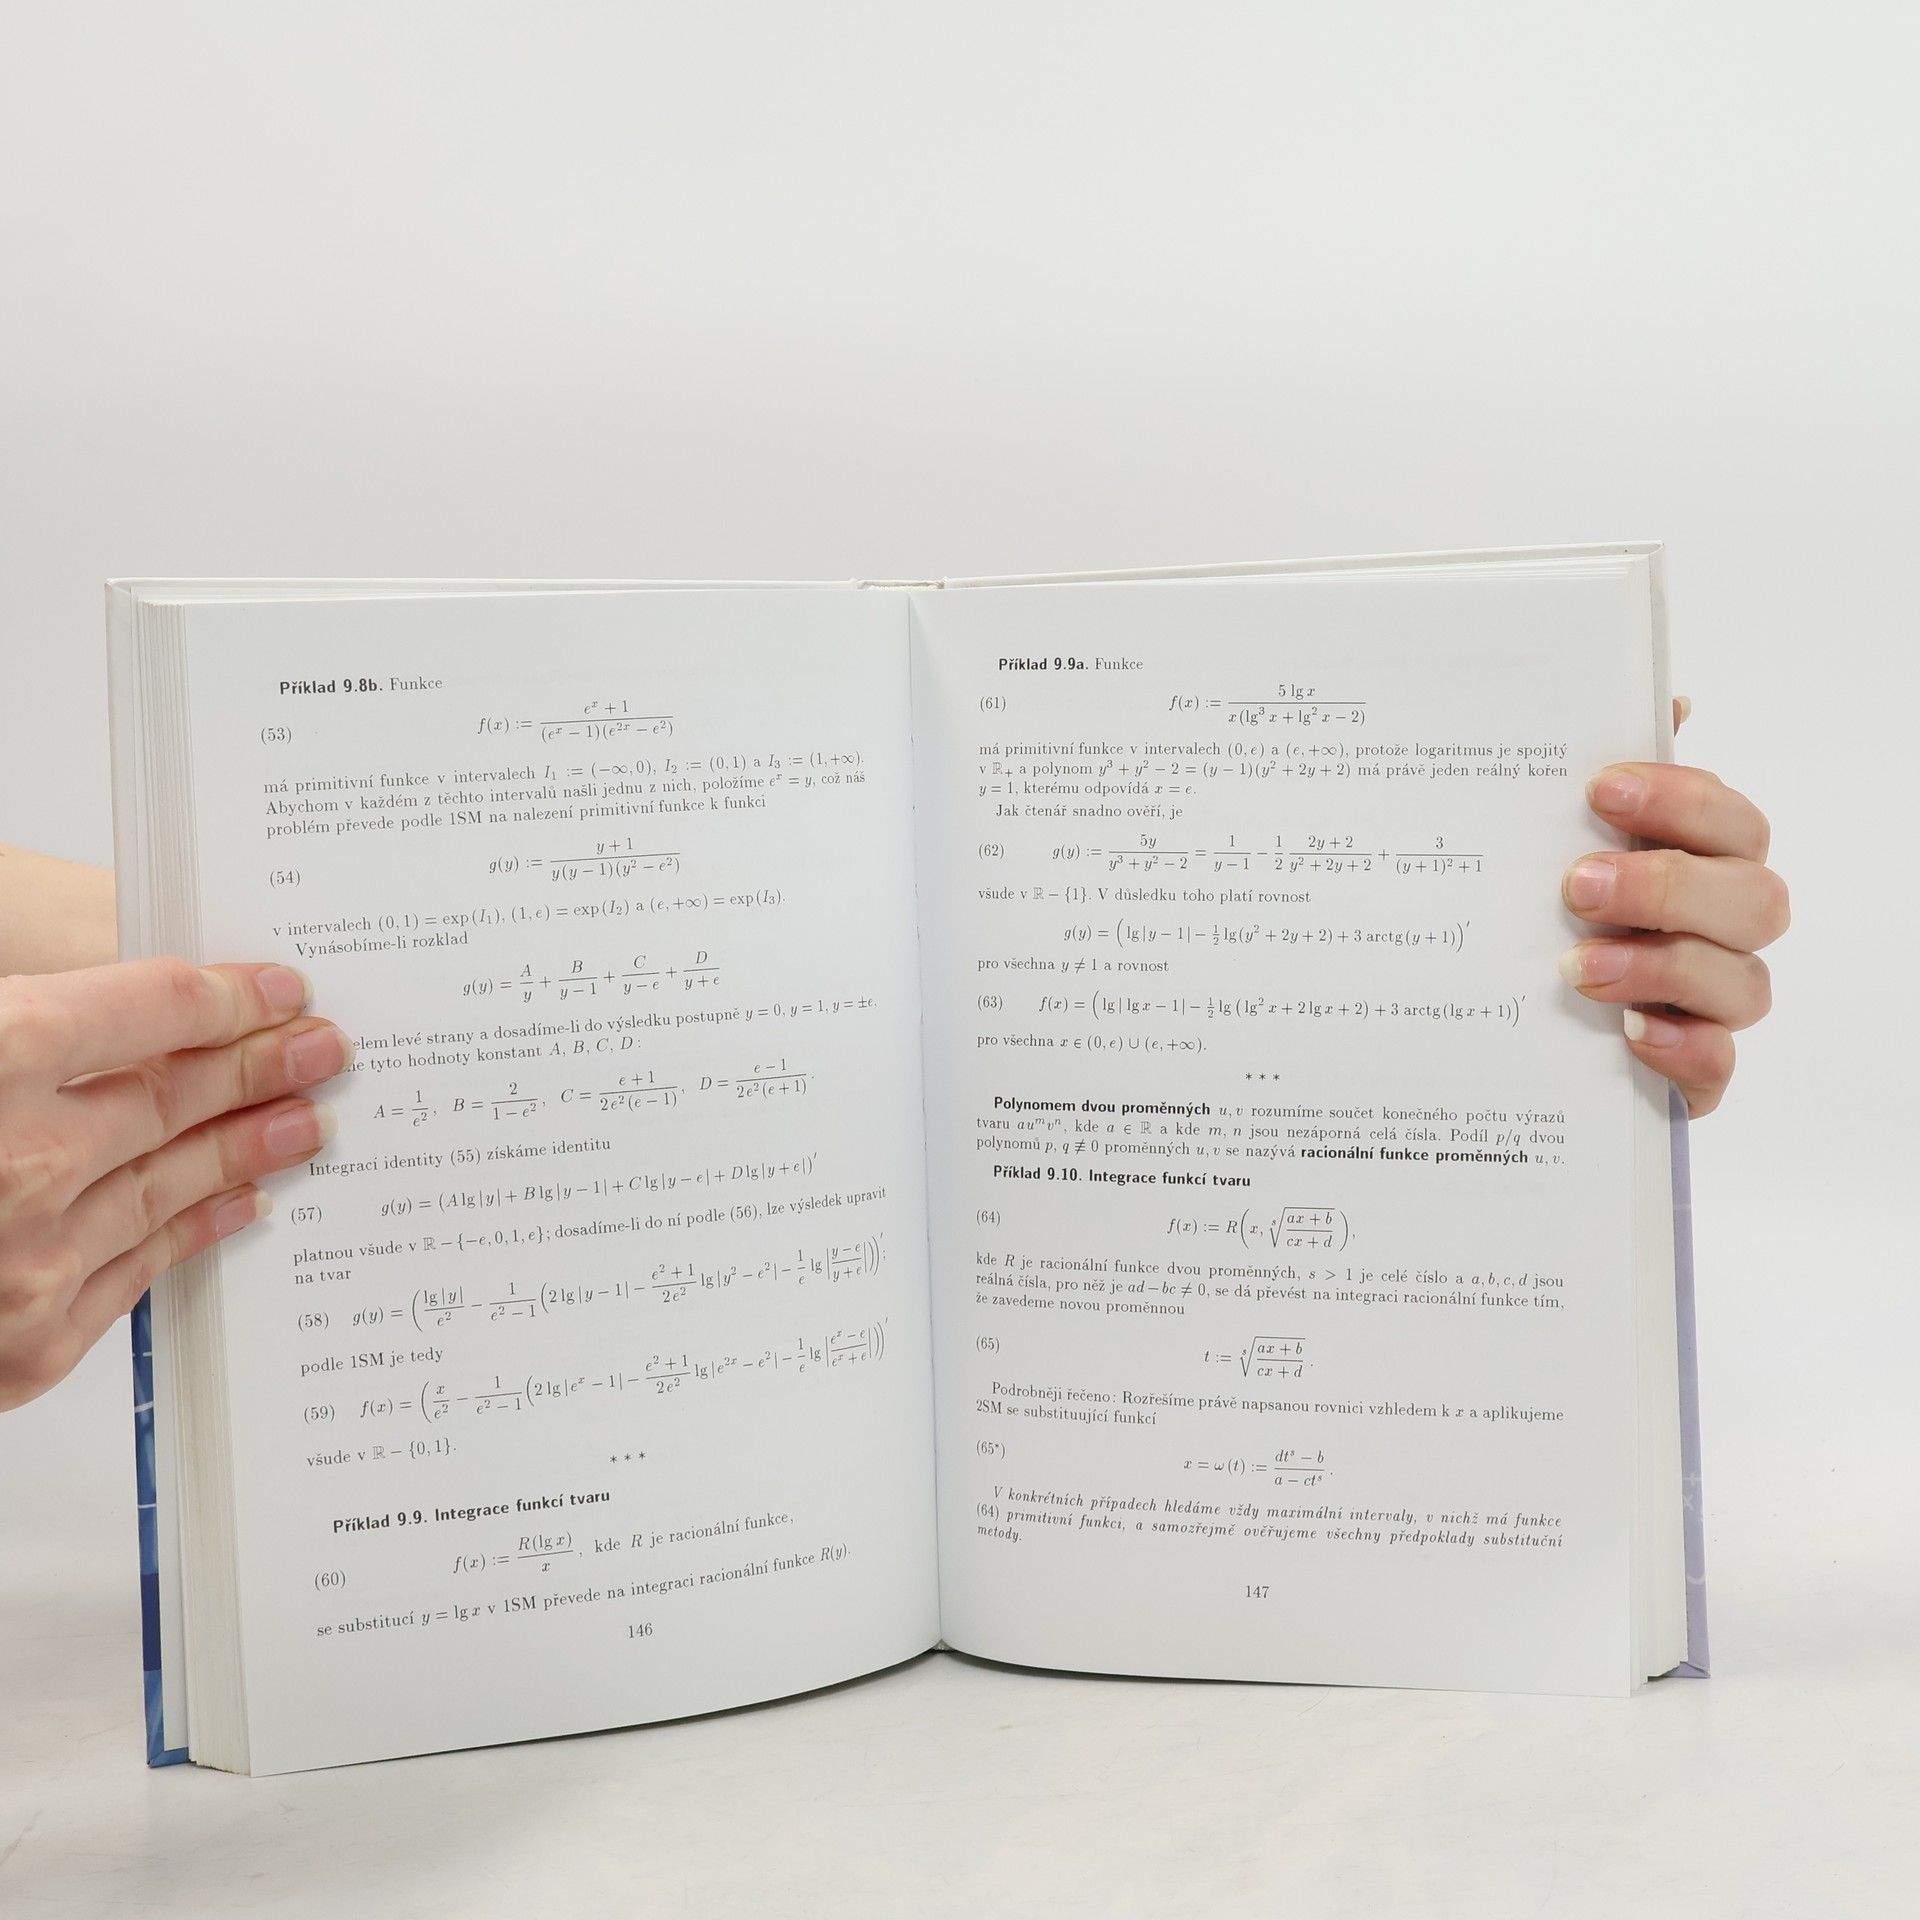 Příklad 9.8b. Funkce
(53) f(x) := \frac{e^x + 1}{(e^x − 1)(e^{2x} − e^2)}
má primitivní funkce v intervalech I_1 := (−∞, 0), I_2 := (0, 1) a I_3 := (1, +∞).
Abychom v každém z těchto intervalů našli jednu z nich, položíme e^x = y, což náš
problém převede podle 1SM na nalezení primitivní funkce k funkci
(54) g(y) := \frac{y + 1}{y(y − 1)(y^2 − e^2)}
v intervalech (0, 1) = exp(I_1), (1, e) = exp(I_2) a (e, +∞) = exp(I_3).
Vynásobíme-li rozklad
g(y) = \frac{A}{y} + \frac{B}{y − 1} + \frac{C}{y − e} + \frac{D}{y + e}
levé strany a dosadíme-li do výsledku postupně y = 0, y = 1, y = ±e,
tyto hodnoty konstant A, B, C, D :
A = \frac{1}{e^2}, B = \frac{2}{1 − e^2}, C = \frac{e + 1}{2e^2(e − 1)}, D = \frac{e − 1}{2e^2(e + 1)}.
Integrací identity (55) získáme identitu
(57) g(y) = (A lg|y| + B lg|y − 1| + C lg|y − e| + D lg|y + e|)′
platnou všude v ℝ − {−e, 0, 1, e}; dosadíme-li do ní podle (56), lze výsledek upravit
na tvar
(58) g(y) = (\frac{lg|y|}{e^2} − \frac{1}{e^2 − 1}(2 lg|y − 1| − \frac{e^2 + 1}{2e^2} lg|y^2 − e^2| − \frac{1}{e} lg|\frac{y − e}{y + e}|))′;
podle 1SM je tedy
(59) f(x) = (\frac{x}{e^2} − \frac{1}{e^2 − 1}(2 lg|e^x − 1| − \frac{e^2 + 1}{2e^2} lg|e^{2x} − e^2| − \frac{1}{e} lg|\frac{e^x − e}{e^x + e}|))′
všude v ℝ − {0, 1}.
* * *
Příklad 9.9. Integrace funkcí tvaru
(60) f(x) := \frac{R(lg x)}{x}, kde R je racionální funkce,
se substitucí y = lg x v 1SM převede na integraci racionální funkce R(y).
146
Příklad 9.9a. Funkce
(61) f(x) := \frac{5 lg x}{x(lg^3 x + lg^2 x − 2)}
má primitivní funkce v intervalech (0, e) a (e, +∞), protože logaritmus je spojitý
v ℝ_+ a polynom y^3 + y^2 − 2 = (y − 1)(y^2 + 2y + 2) má právě jeden reálný kořen
y = 1, kterému odpovídá x = e.
Jak čtenář snadno ověří, je
(62) g(y) := \frac{5y}{y^3 + y^2 − 2} = \frac{1}{y − 1} − \frac{1}{2} \frac{2y + 2}{y^2 + 2y + 2} + \frac{3}{(y + 1)^2 + 1}
všude v ℝ − {1}. V důsledku toho platí rovnost
g(y) = (lg|y − 1| − \frac{1}{2} lg(y^2 + 2y + 2) + 3 arctg(y + 1))′
pro všechna y ≠ 1 a rovnost
(63) f(x) = (lg| lg x − 1| − \frac{1}{2} lg(lg^2 x + 2 lg x + 2) + 3 arctg(lg x + 1))′
pro všechna x ∈ (0, e) ∪ (e, +∞).
* * *
Polynomem dvou proměnných u, v rozumíme součet konečného počtu výrazů
tvaru au^m v^n, kde a ∈ ℝ a kde m, n jsou nezáporná celá čísla. Podíl p/q dvou
polynomů p, q ≢ 0 proměnných u, v se nazývá racionální funkce proměnných u, v.
Příklad 9.10. Integrace funkcí tvaru
(64) f(x) := R(x, \sqrt[s]{\frac{ax + b}{cx + d}}),
kde R je racionální funkce dvou proměnných, s > 1 je celé číslo a a, b, c, d jsou
reálná čísla, pro něž je ad − bc ≠ 0, se dá převést na integraci racionální funkce tím,
že zavedeme novou proměnnou
(65) t := \sqrt[s]{\frac{ax + b}{cx + d}}.
Podrobněji řečeno: Rozřešíme právě napsanou rovnici vzhledem k x a aplikujeme
2SM se substituující funkcí
(65*) x = ω(t) := \frac{dt^s − b}{a − ct^s}.
V konkrétních případech hledáme vždy maximální intervaly, v nichž má funkce
(64) primitivní funkci, a samozřejmě ověřujeme všechny předpoklady substituční
metody.
147